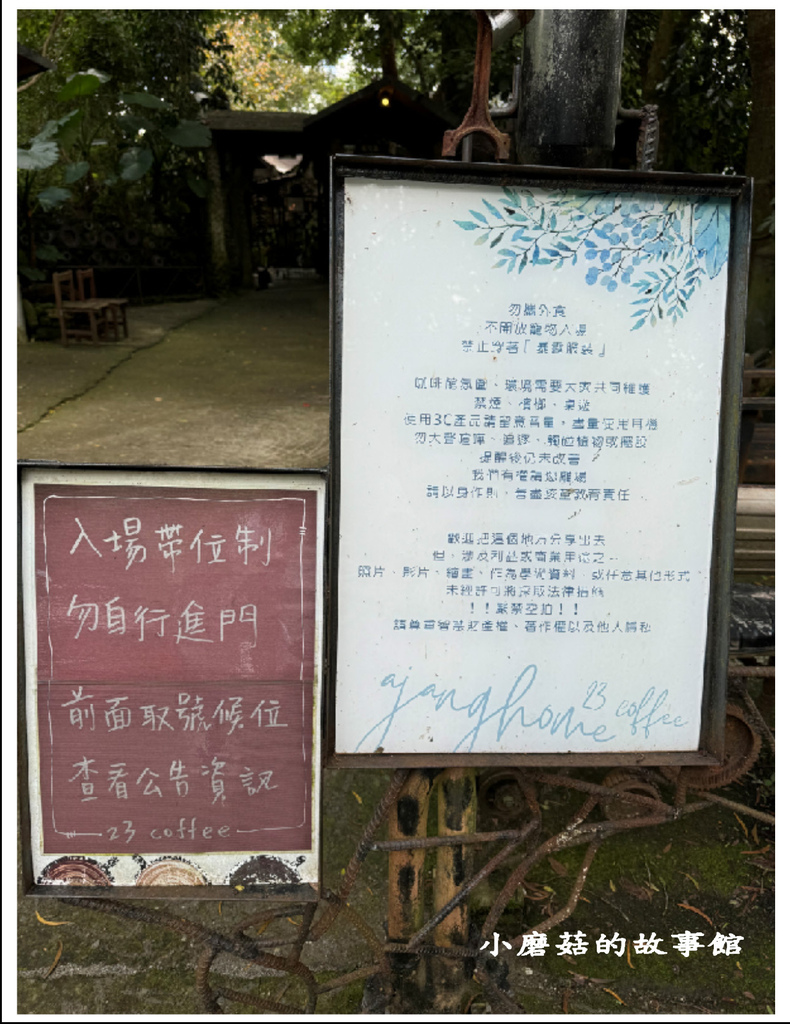 勿攜外食
不開放寵物入場
禁止穿著『暴露服裝』
咖啡館氛圍、環境需要大家共同維護
禁煙、檳榔、桌遊
使用3C產品請留意音量，盡量使用耳機
勿大聲喧嘩、追逐、觸碰植物或擺設
提醒後仍未改善
我們有權請您離場
請以身作則，善盡孩童教育責任
歡迎把這個地方分享出去
但，涉及利益或商業用途之
照片、影片、繪畫、作為學術資料，或任意其他形式
未經許可將採取法律措施
！！嚴禁空拍！！
請尊重智慧財產權、著作權以及他人隱私
ajanghome 23 coffee
入場帶位制
勿自行進門
前面取號候位
查看公告資訊
23 coffee
小磨菇的故事館